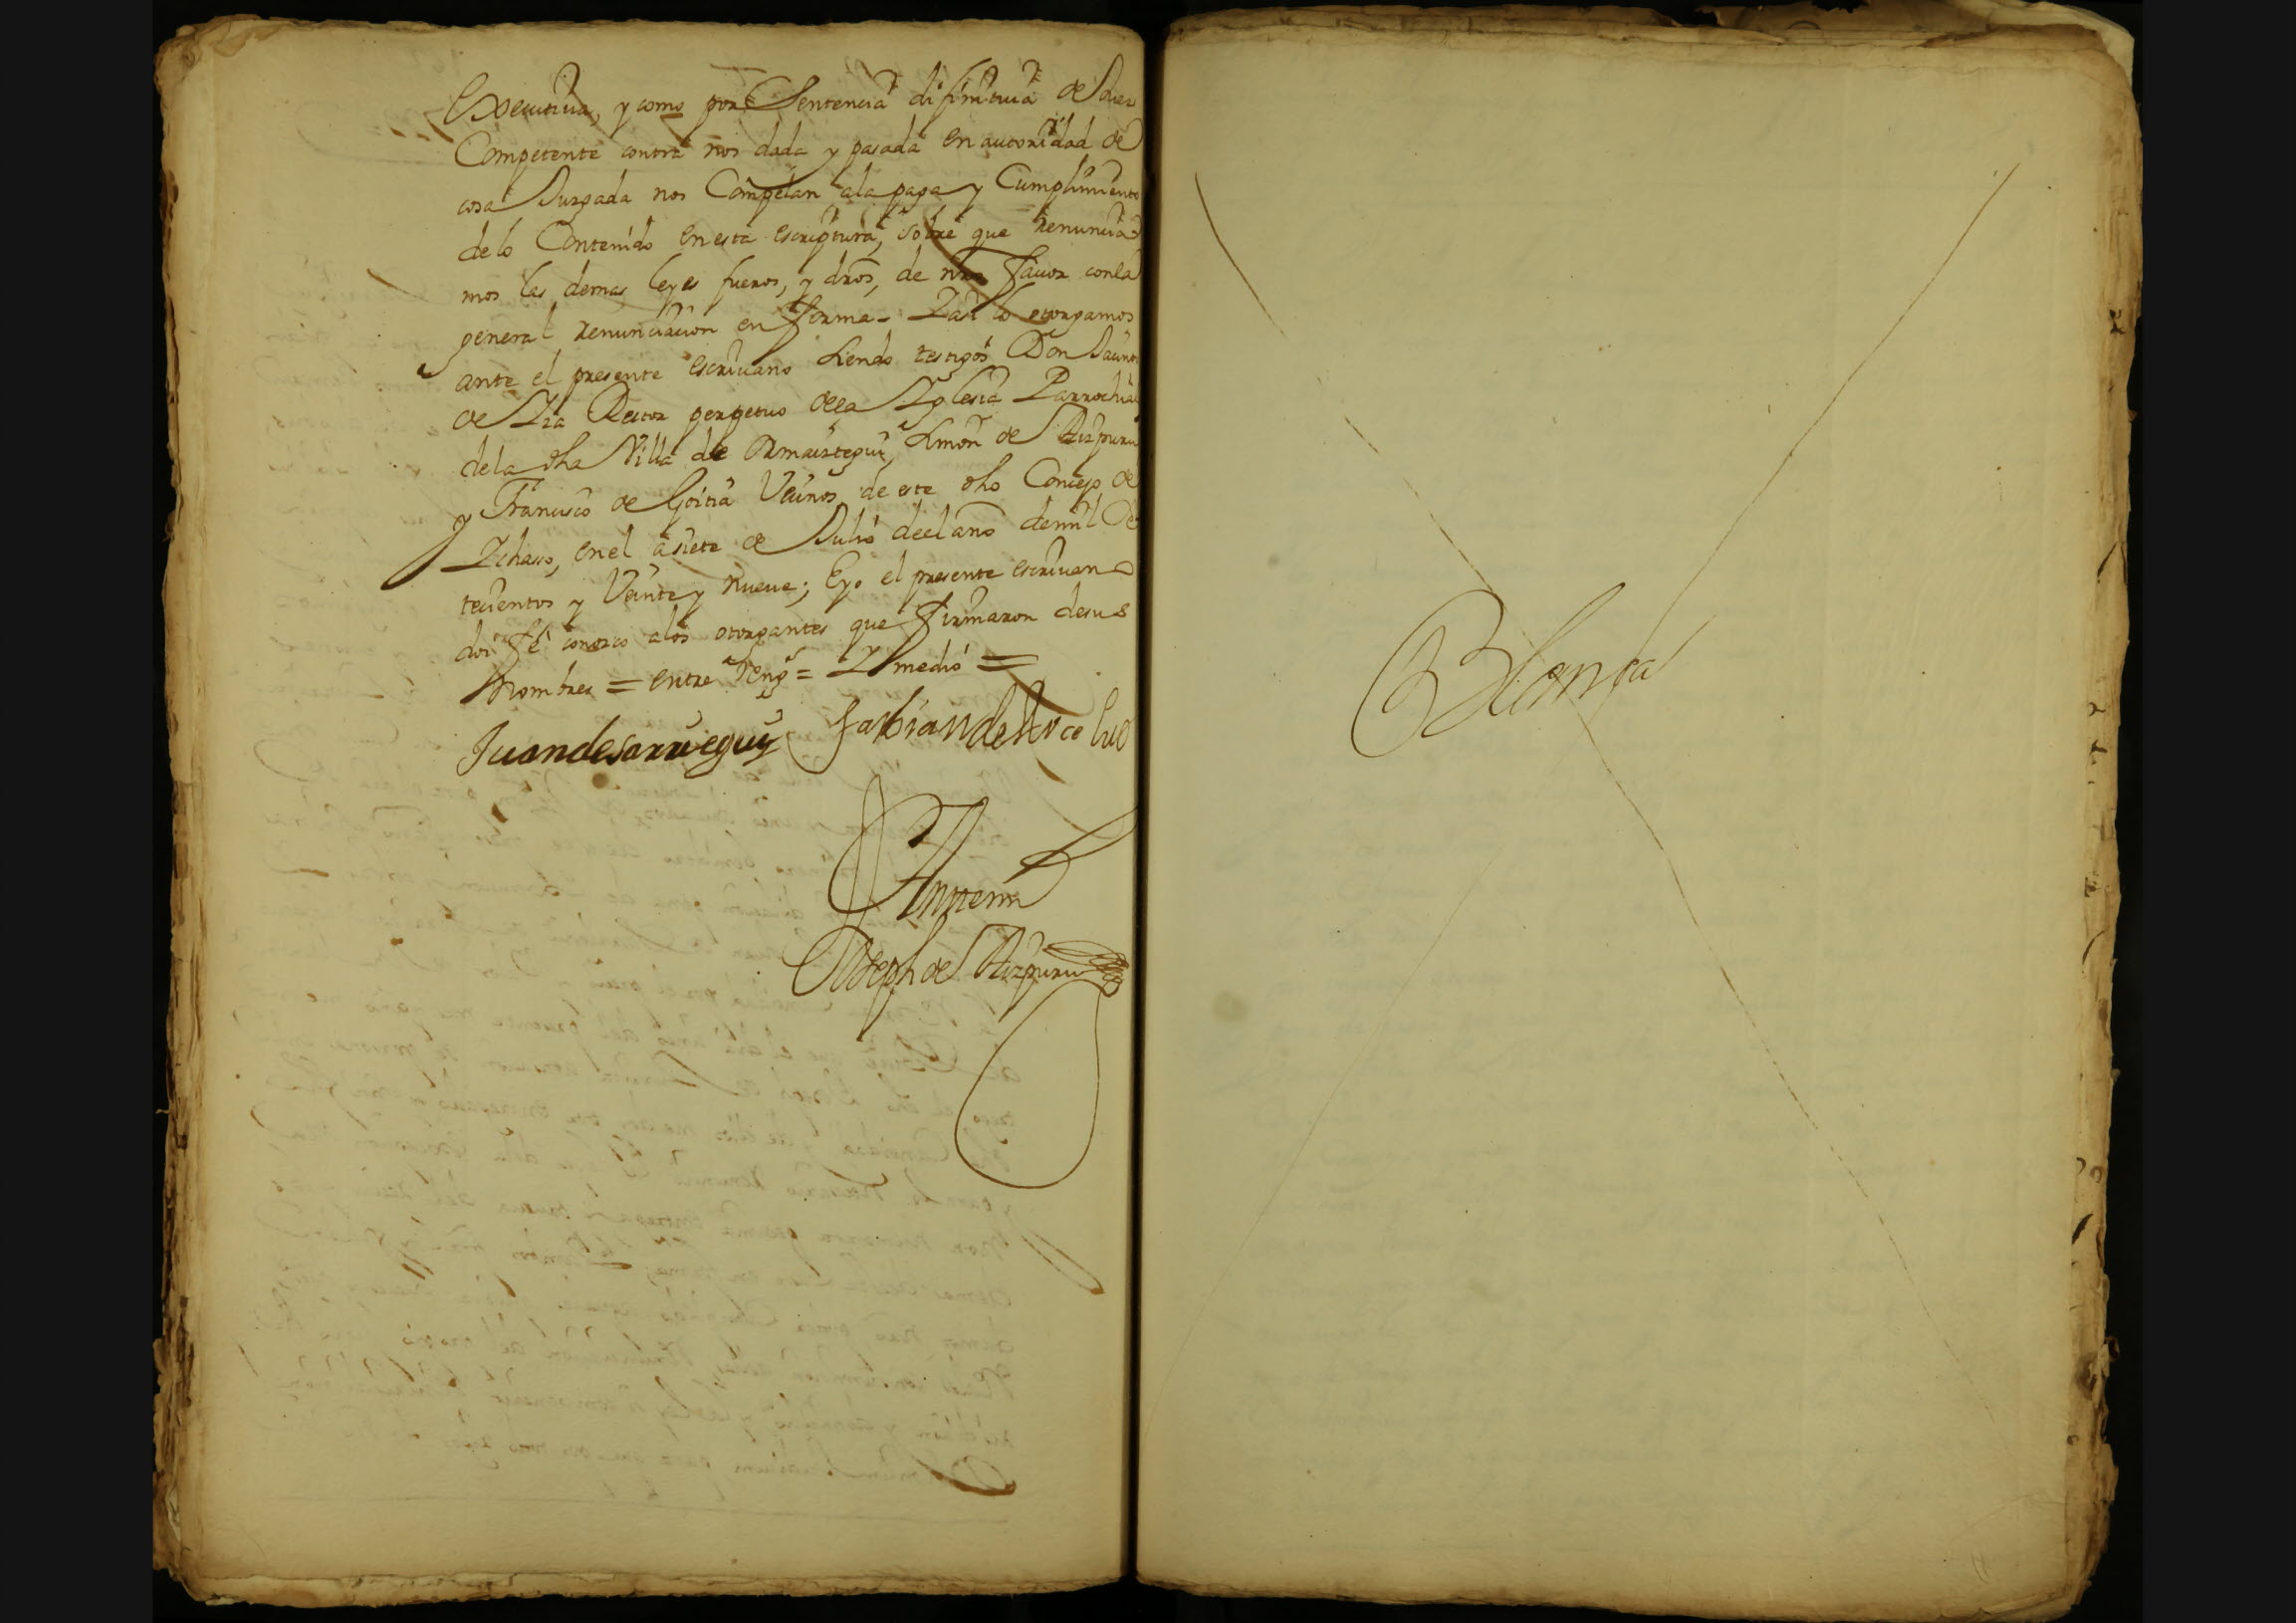 Executiva, y como por Sentencia difinitiva de Juez
Competente contra nos dada y pasada en autoridad de
cosa Juzgada nos Compelan ala paga y Cumplimiento
delo Contenido en esta escriptura, sobre que Renuncia
mos las demas leyes fueros, y dros, de nro favor conla
general renunciacion en forma - Y asi lo otorgamos
ante el presente escrivano siendo testigos Don
de Rector perpetuo dela Yglesia Parrochial
dela dha Villa de Ormaiztegui, Simon de Aizpuru
y Francisco de Goitia Vecinos de este dho Concejo de
Ychaso, en el a siete de Julio de el año de mil Se
tecientos y Veinte y nueve; E yo el presente escrivano
doi fe conozco alos otorgantes que firmaron de sus
Nombres = entre Rengs = Y medio =
Juan de sarruegui Fabian de
Antemi
Joseph de Aizpuru
Blanca